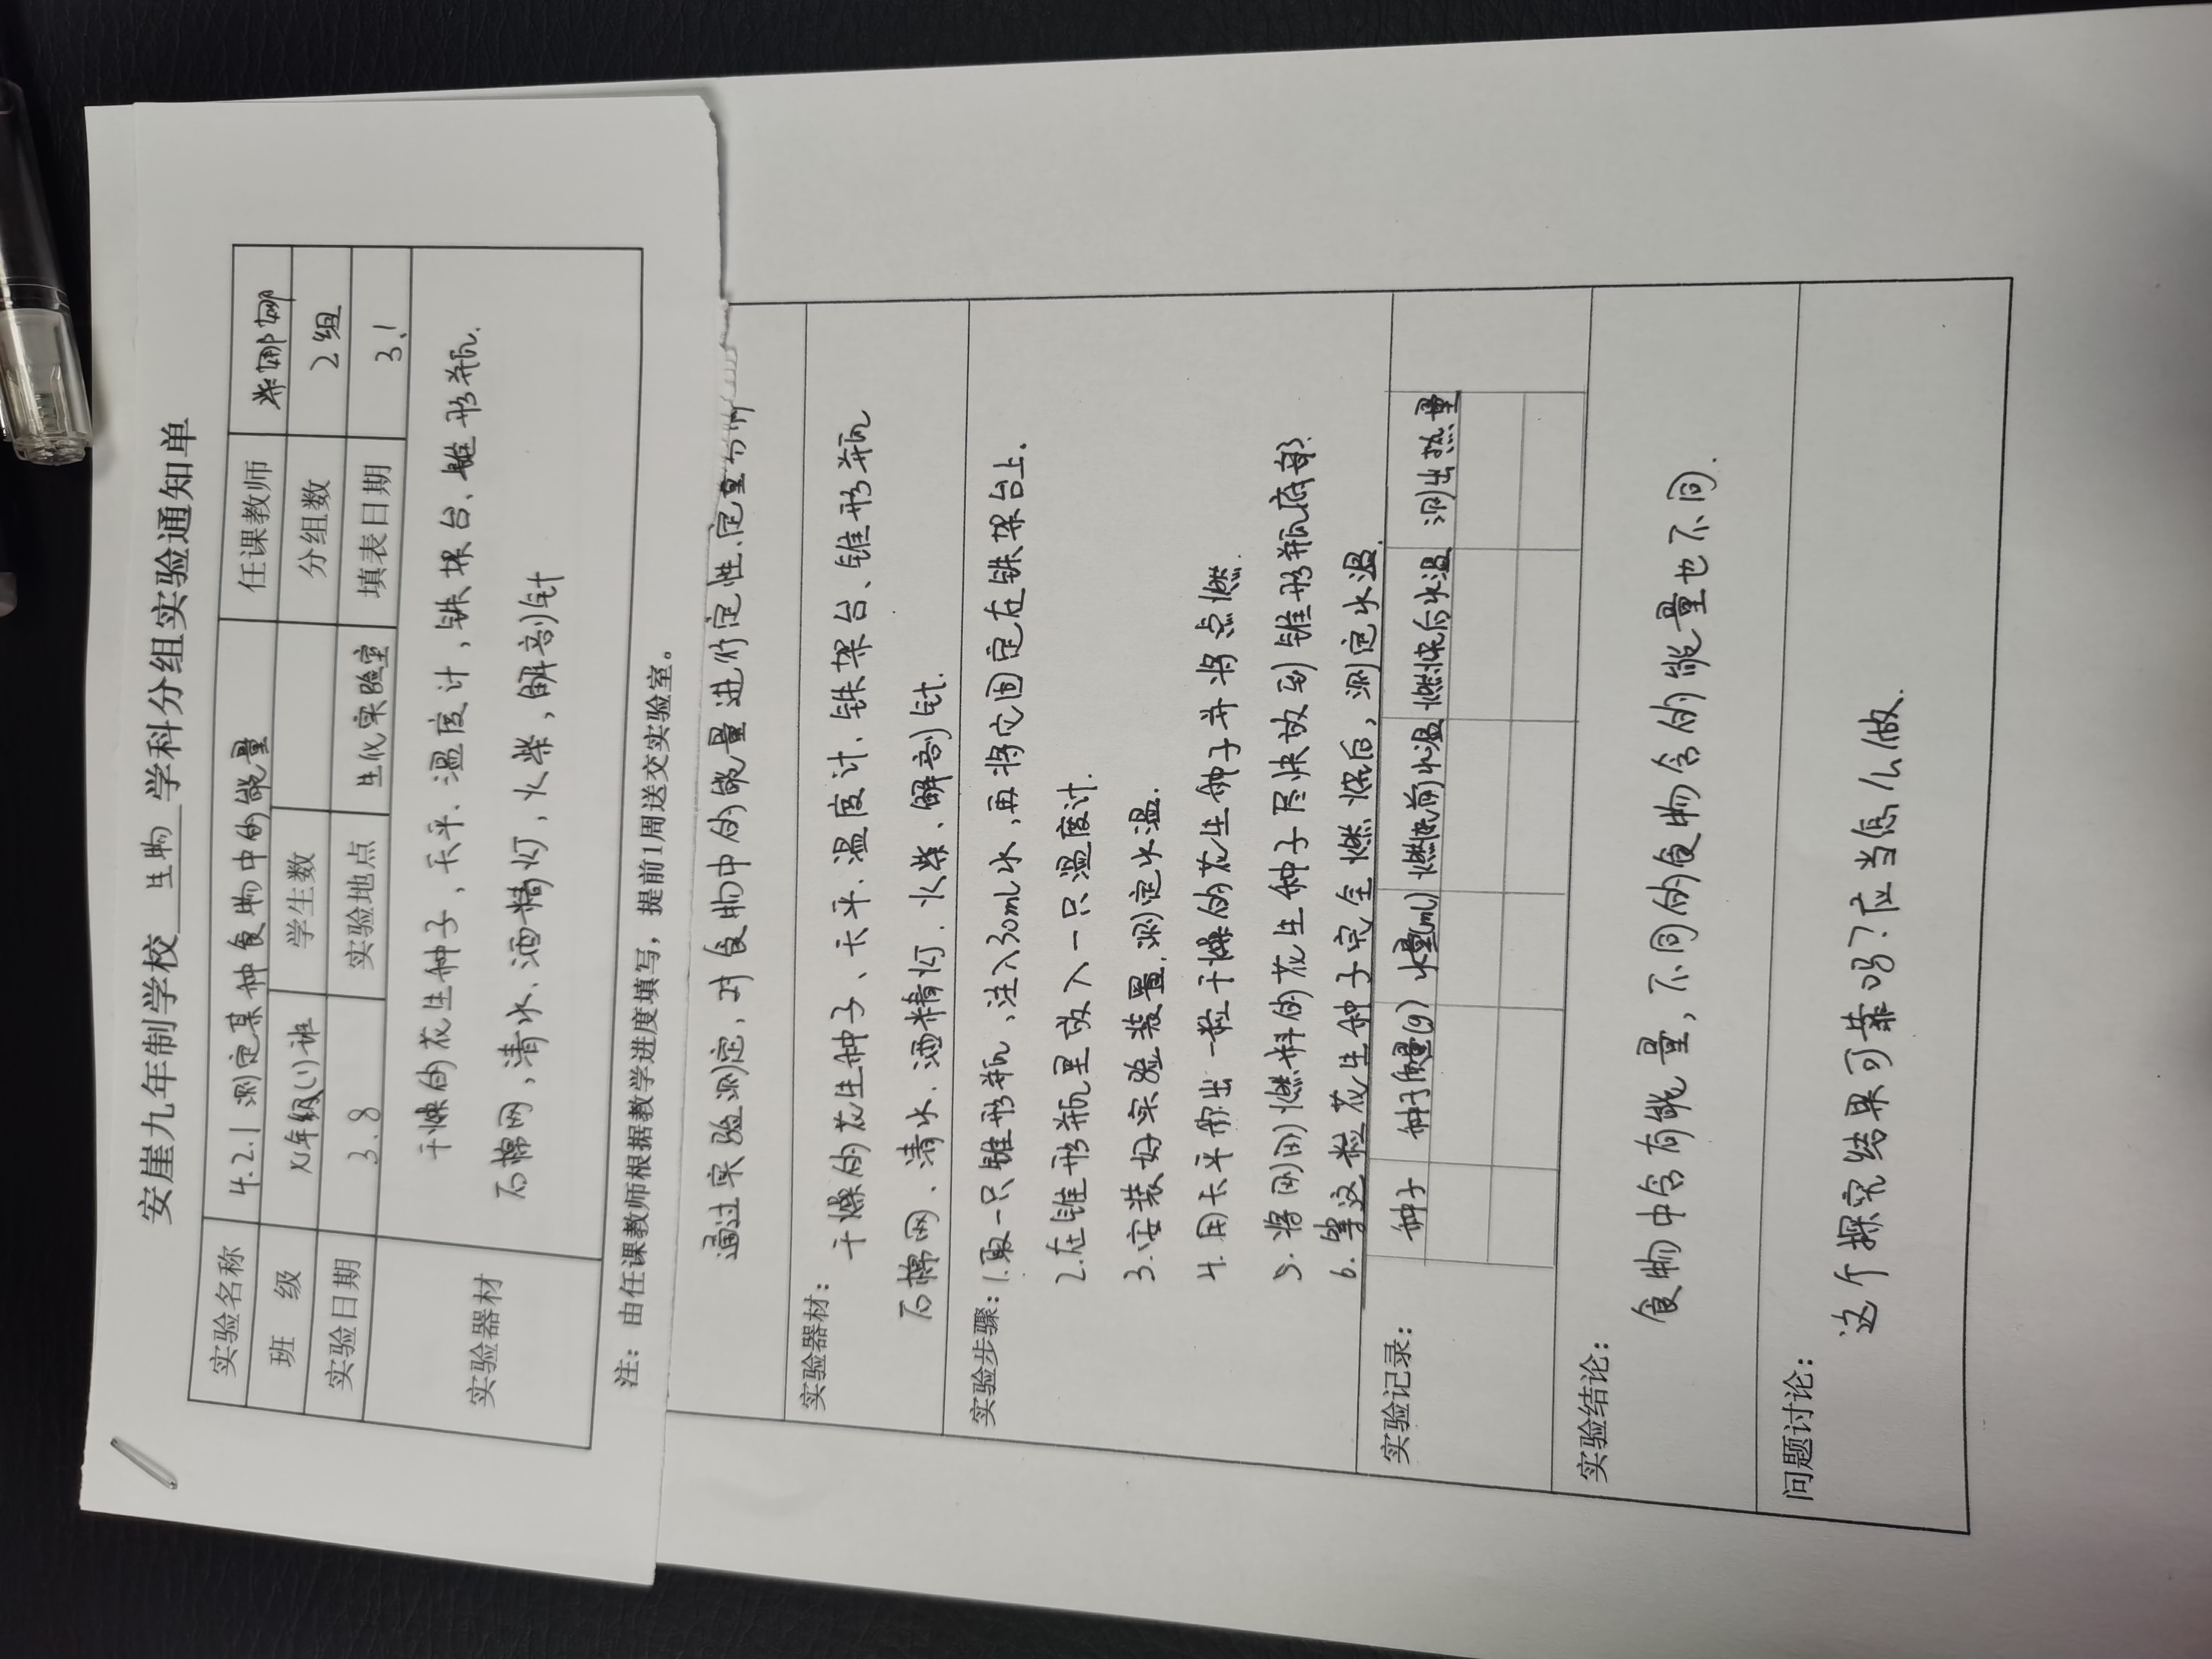 安崖九年制学校 生物 学科分组实验通知单
实验名称 4.2.1 测定某种食物中的能量 任课教师 柴娜娜
班 级 七年级(1)班 学生数 分组数 2组
实验日期 3.8 实验地点 生化实验室 填表日期 3.1
实验器材 干燥的花生种子,天平、温度计,铁架台、锥形瓶.
石棉网,清水、酒精灯,火柴,解剖针
注：由任课教师根据教学进度填写，提前1周送交实验室。
通过实验测定,对食物中的能量进行定性.定量分析
实验器材：
干燥的花生种子、天平、温度计、铁架台、锥形瓶
石棉网、清水、酒精灯、火柴、解剖针.
实验步骤：1.取一只锥形瓶,注入30mL水,再将它固定在铁架台上.
2.在锥形瓶里放入一只温度计.
3.安装好实验装置.测定水温.
4.用天平称出一粒干燥的花生种子并将点燃.
5.将刚刚燃料的花生种子尽快放到锥形瓶底部.
6.等这粒花生种子完全燃烧后,测定水温.
实验记录：
种子 种子质量(g) 水量(mL) 燃烧前水温 燃烧后水温 测出热量
实验结论：
食物中含有能量,不同的食物含的能量也不同.
问题讨论：
这个探究结果可靠吗?应当怎么做.